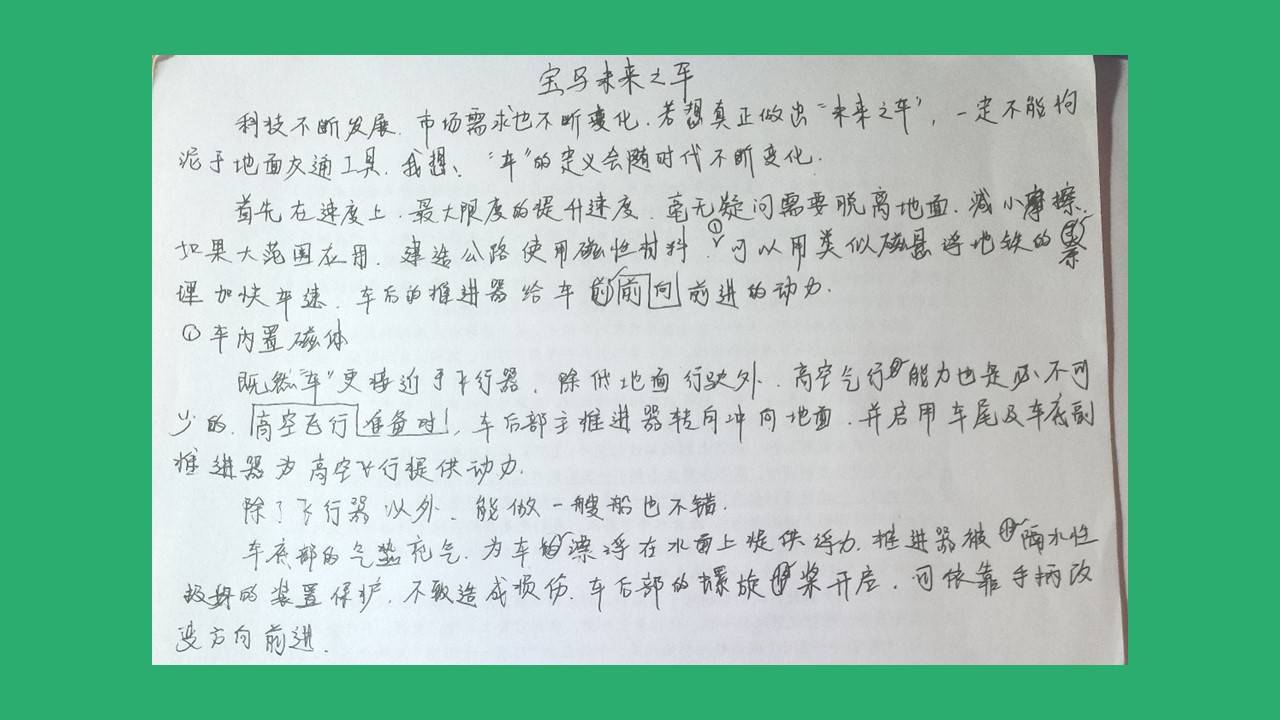 宝马未来之车
科技不断发展.市场需求也不断变化.若想真正做出“未来之车”,一定不能拘
泥于地面交通工具.我想、“车”的定义会随时代不断变化.
首先在速度上.最大限度的提升速度.毫无疑问需要脱离地面.减小摩擦.
如果大范围应用.建造公路使用磁性材料①.可以用类似磁悬浮地铁的原
理加快车速.车后的推进器给车前向前进的动力.
①车内置磁体
既然“车”更接近于飞行器.除低地面行驶外.高空飞行能力也是必不可
少的.高空飞行准备时,车后部主推进器转向冲向地面.并启用车尾及车底副
推进器为高空飞行提供动力.
除了飞行器以外.能做一艘船也不错.
车底部的气垫充气.为车漂浮在水面上提供浮力.推进器被隔水性
极好的装置保护.不致造成损伤.车后部的螺旋桨开启.可依靠手柄改
变方向前进.